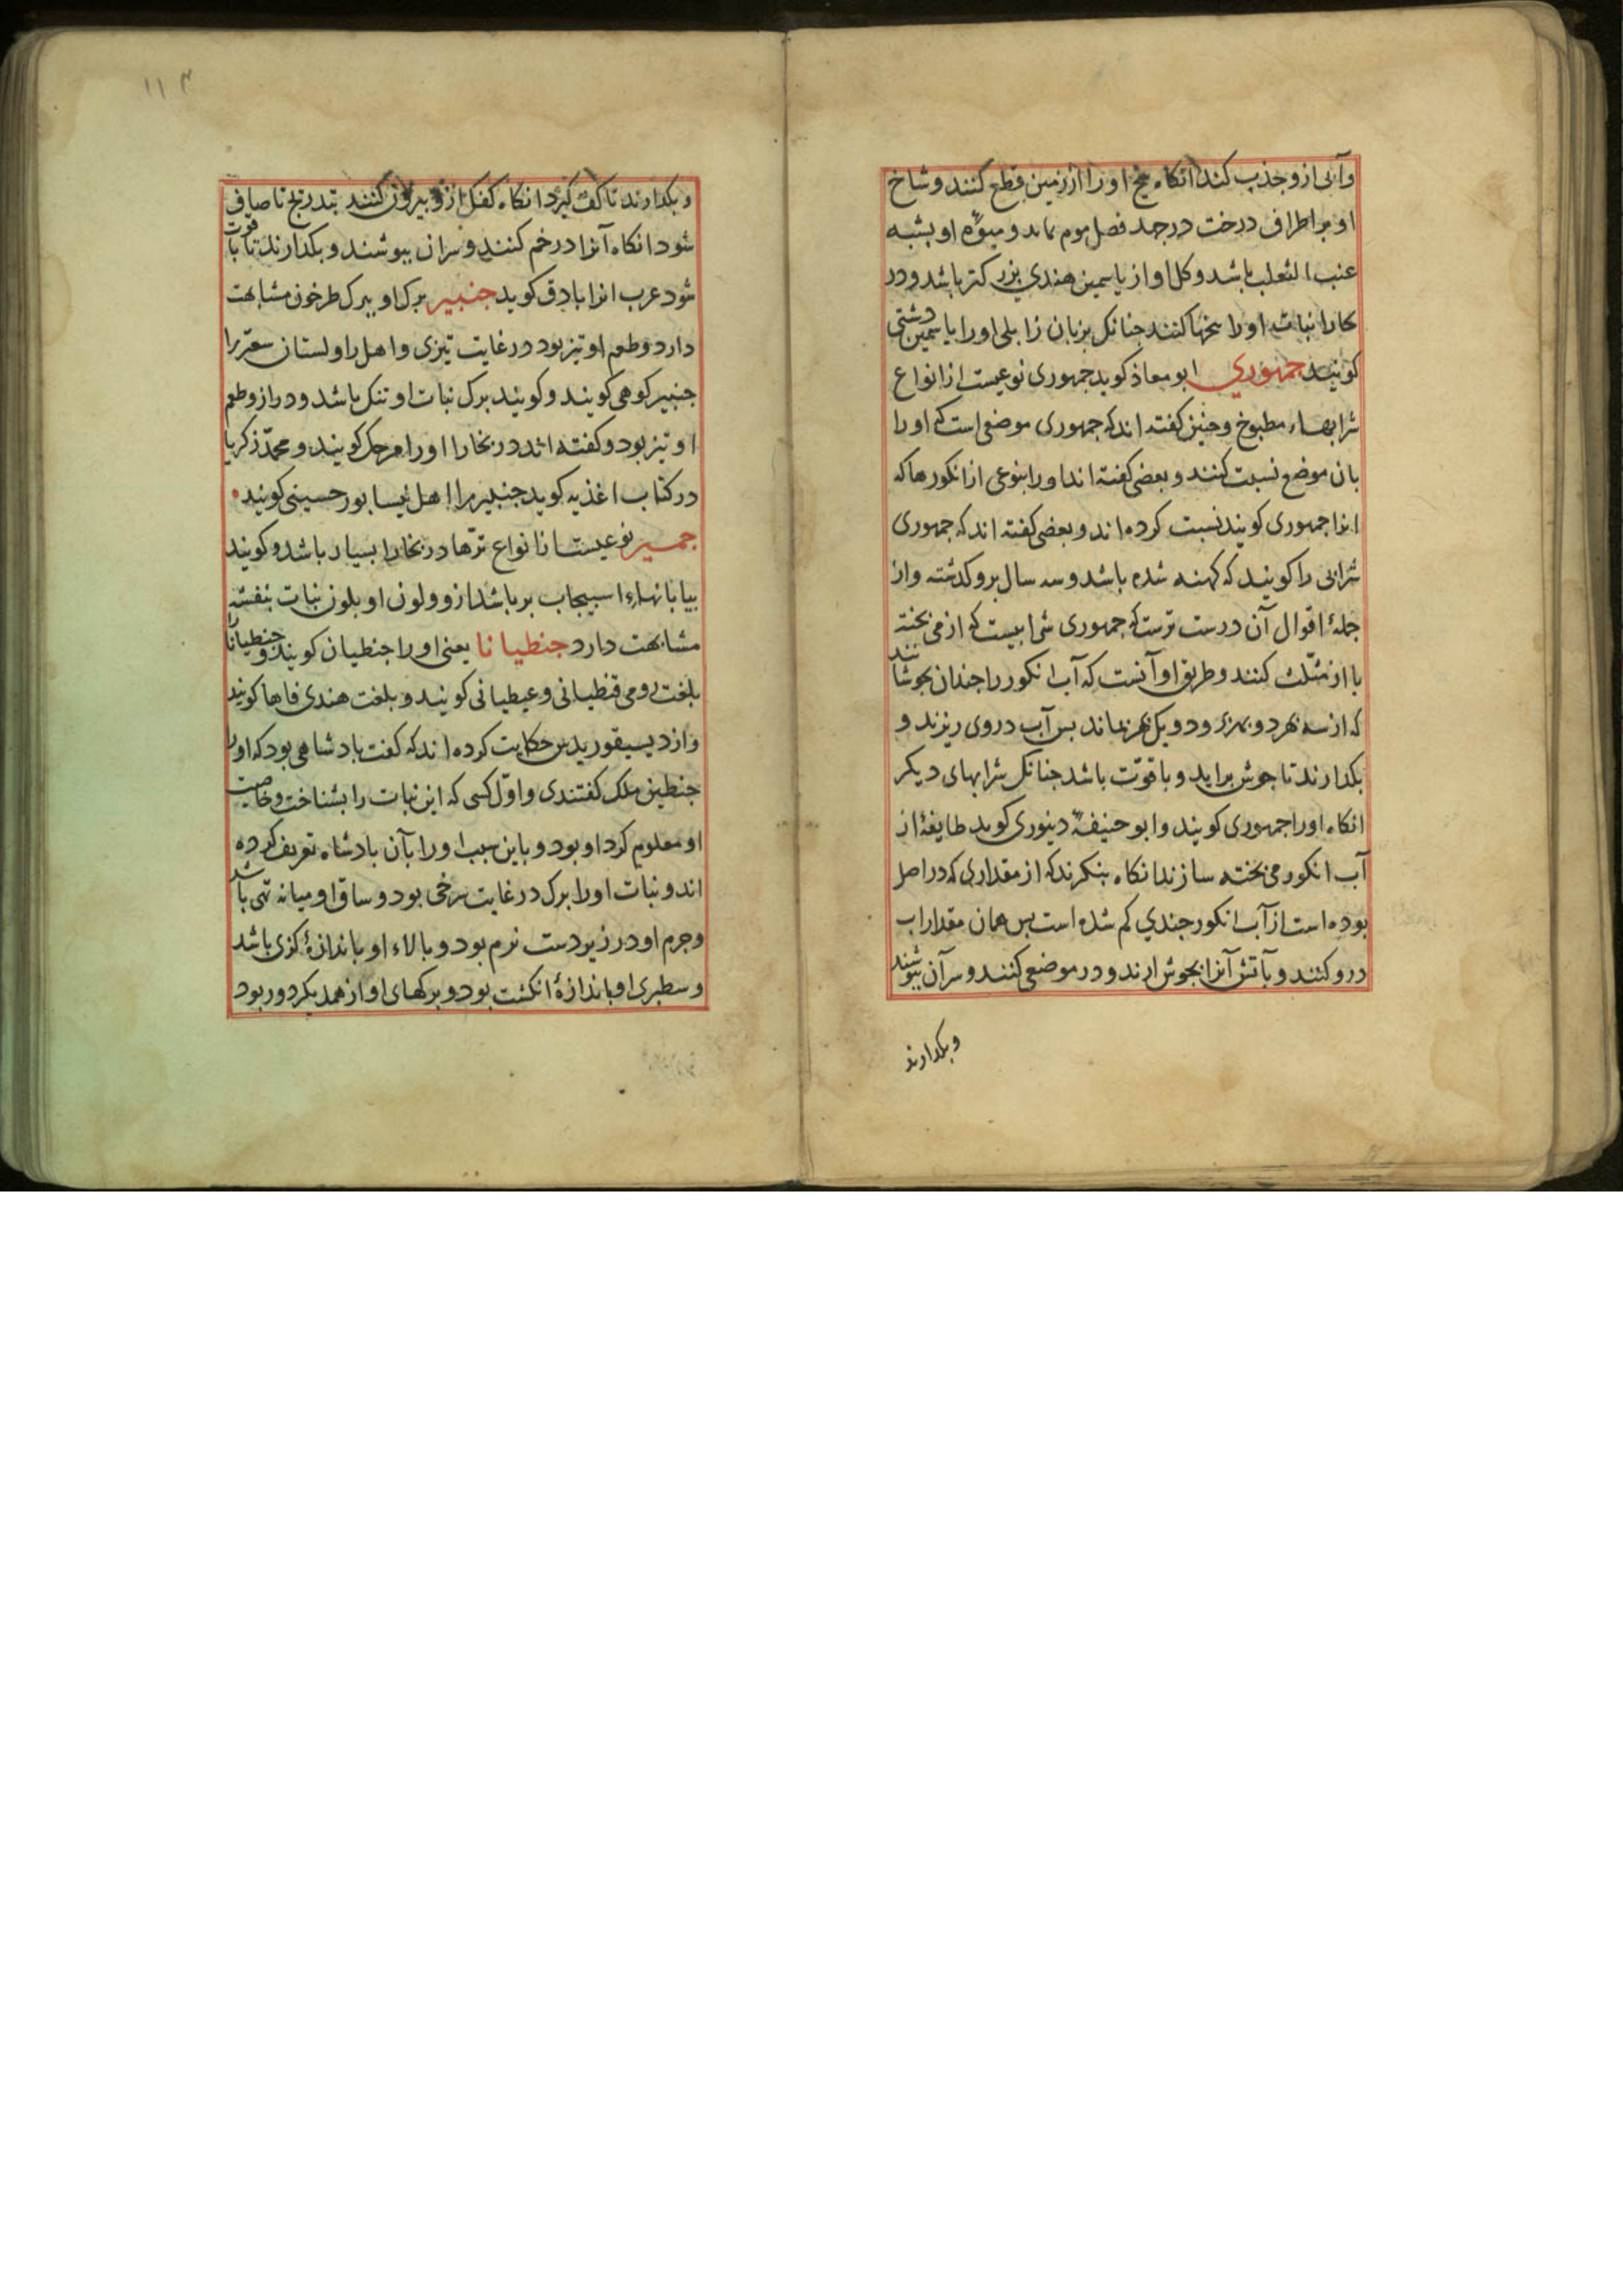 وآبی ازو جذب کند انکاه بیخ او را از زمین قطع کنند و شاخ
او بر اطراف درخت در جمد فصل موم ماند و میوهٔ او بشبه
عنب الثعلب باشد و کل او از یاسمین هندی بزرکتر باشد و در
نبات او را کنند جنانک بزبان زابلی او را یاسمین دشتی
کویند جمهوری ابو معاذ کوید جمهوری نوعیست از انواع
شرابهاء مطبوخ وجنین کفته اند که جمهوری موضعی است که او را
بان موضع نسبت کنند و بعضی کفته اند او را بنوعی از انکورها که
انرا جمهوری کویند نسبت کرده اند و بعضی کفته اند که جمهوری
شرابی را کویند که کهنه شده باشد و سه سال برو کذشته واز
جملهٔ اقوال آن درست ترست که جمهوری شرابیست که از می بخته
یا از مثلث کنند و طریق او آنست که آب انکور را جندان بجوشانند
که از سه بهر دو بهر برود و یک بهر بماند بس آب در وی ریزند و
بکدارند تا جوش براید و با قوّت باشد جنانک شرابهای دیکر
انکاه او را جمهوری کویند و ابو حنیفهٔ دینوری کوید طایفهٔ از
آب انکور می بخته سازند انکاه بنکرند که از مقداری که در اصل
بوده است از آب انکور جندی کم شده است بس همان مقدار اب
درو کنند و بآتش آنرا بجوش ارند و در موضعی کنند و سر آن ببوشند
وبکدارند
۱۱۳
و بکدارند تا کف کیرد انکاه کفک ازو بیرون کنند بتدریج تا صافی
شود انکاه آنرا در خم کنند و سر ان ببوشند و بکدارند تا با قوت
شود عرب انرا بادق کوید جنبیر برک او ببرک طرخون مشابهت
دارد و طعم او تیز بود در غایت تیزی و اهل زاولستان سعتر را
جنبیر کوهی کویند و کویند برک نبات او تنک باشد و دراز و طعم
او تیز بود و کفته اند در بخارا او را مرجک کویند و محمّد زکریا
در کتاب اغذیه کوید جنبیر را اهل نیسابور حسینی کویند
جمسیر نوعیست از انواع ترّها در بخارا بسیار باشد و کویند
بیابانهاء اسبیجاب بر باشد ازو و لون او بلون نبات بنفشه
مشابهت دارد جنطیانا یعنی او را جنطیان کویند و جنطیانا
بلغت رومی قنطیانی و عیطیانی کویند و بلغت هندی فاها کویند
و از دیسیقوریدس حکایت کرده اند که کفت بادشاهی بود که او را
جنطین ملک کفتندی و اوّل کسی که این نبات را بشناخت و خاصیت
او معلوم کرد او بود و باین سبب او را بآن بادشاه تعریف کرده
اند و نبات او را برک در غایت سرخی بود و ساق او میانه تهی باشد
وجرم او در زیر دست نرم بود و بالاء او باندازهٔ کزی باشد
و سطبری او باندازهٔ انکشت بود و برکهای او از همدیکر دور بود